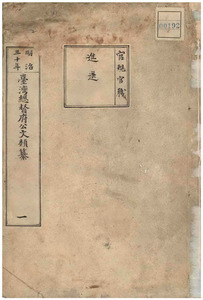 00192
官規官職
進退
明治三十年
臺灣總督府公文類纂
一